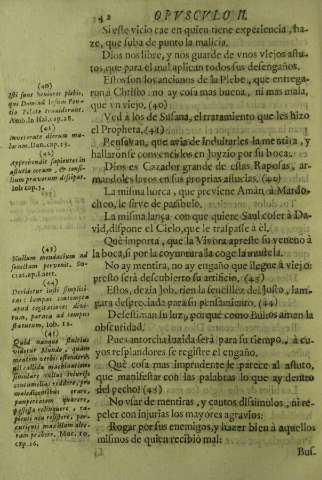 42 OPVSCVLO II.
Si este vicio cae en quien tiene experiencia, ha-
ze, que suba de punto la malicia.
Dios nos libre, y nos guarde de vnos viejos astu-
tos, que para el mal aplican todos sus desengaños.
Estos son los ancianos de la Plebe, que entrega-
ron à Christo: no ay cosa mas buena, ni mas mala,
que vn viejo. (40)
Ved à los de Susana, el tratamiento que les hizo
el Propheta. (41)
Pensavan, que avia de Indultarles la mentira, y
hallaronse convencidos en Juyzio por su boca.
Dios es Cazador grande de estas Raposas, ar-
mandoles lazos en sus proprias astucias. (42)
La misma horca, que previene Amàn à Mardo-
cheo, le sirve de patibulo.
La misma lança con que quiere Saul coser à Da-
vid, dispone el Cielo, que le traspasse à èl.
Què importa, que la Vivora apreste su veneno à
la boca, si por la coyuntura la coge la
No ay mentira, no ay engaño que llegue à viejo:
presto serà descubierto su artificio. (43)
Estos, dezia Job, rien la sencillez del Justo, lam-
para despreciada para su pensamiento. (44)
Desestiman su luz, porquè como Buhos aman la
obscuridad.
Pues antorcha luzida serà para su tiempo, à cu-
yos resplandores se registre el engaño.
Què cosa mas imprudente le parece al astuto,
que manifestar con las palabras lo que ay dentro
del pecho? (45)
No vsar de mentiras, y cautos dissimulos, ni re-
peler con injurias los mayores agravios:
Rogar por sus enemigos, y hazer bien à aquellos
mismos de quien recibiò mal:
Bus.
(40)
Isti sunt seniores plebis,
qui Dominum Iesum Pon-
tio Pilato tradiderunt.
Amb. in Isai. cap. 28.
(41)
Inveterate dierum ma-
lorum. Dan. cap. 13.
(42)
Apprehendit sapientes in
astutia eorum, & consi-
lium pravorum dissipat.
Iob cap. 5.
(43)
Nullum mendacium ad
senectam pervenit. So-
crat. ap. Laert.
(44)
Deridetur iusti simplici-
tas: lampas contempta
apud cogitationes divi-
tum, parata ad tempus
statutum. Iob. 12.
(45)
Quid namque stultius
videtur Mundo, quam
mentem verbis ostendere,
nil callida machinatione
simulare: nullas iniurijs
contumelias reddere, pro
maledicentibus orare,
paupertatem quærere,
possessa relinquere, ra-
pienti non resistere, per-
cutienti maxillam alte-
ram præbere. Mor. 10.
cap. 16.